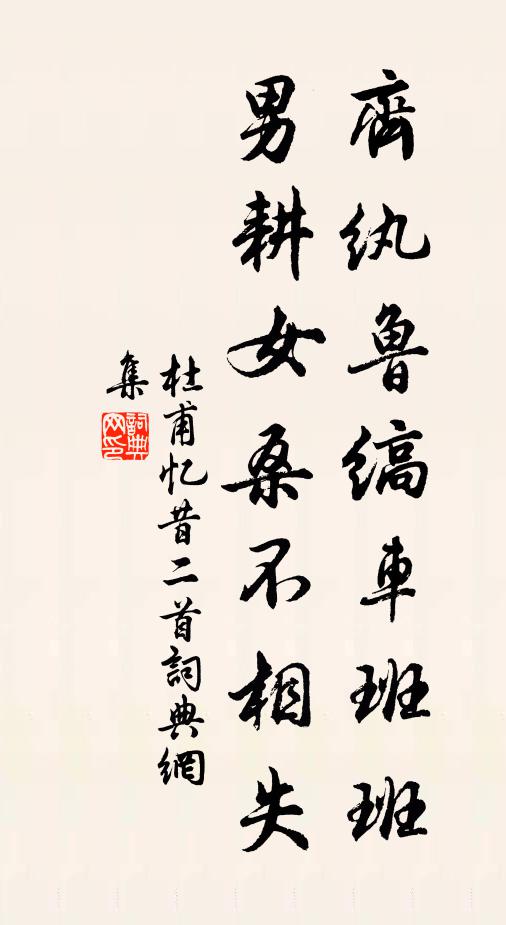 齊紈魯縞車班班
男耕女桑不相失
杜甫忆昔二首詞典網
集
詞典
网印